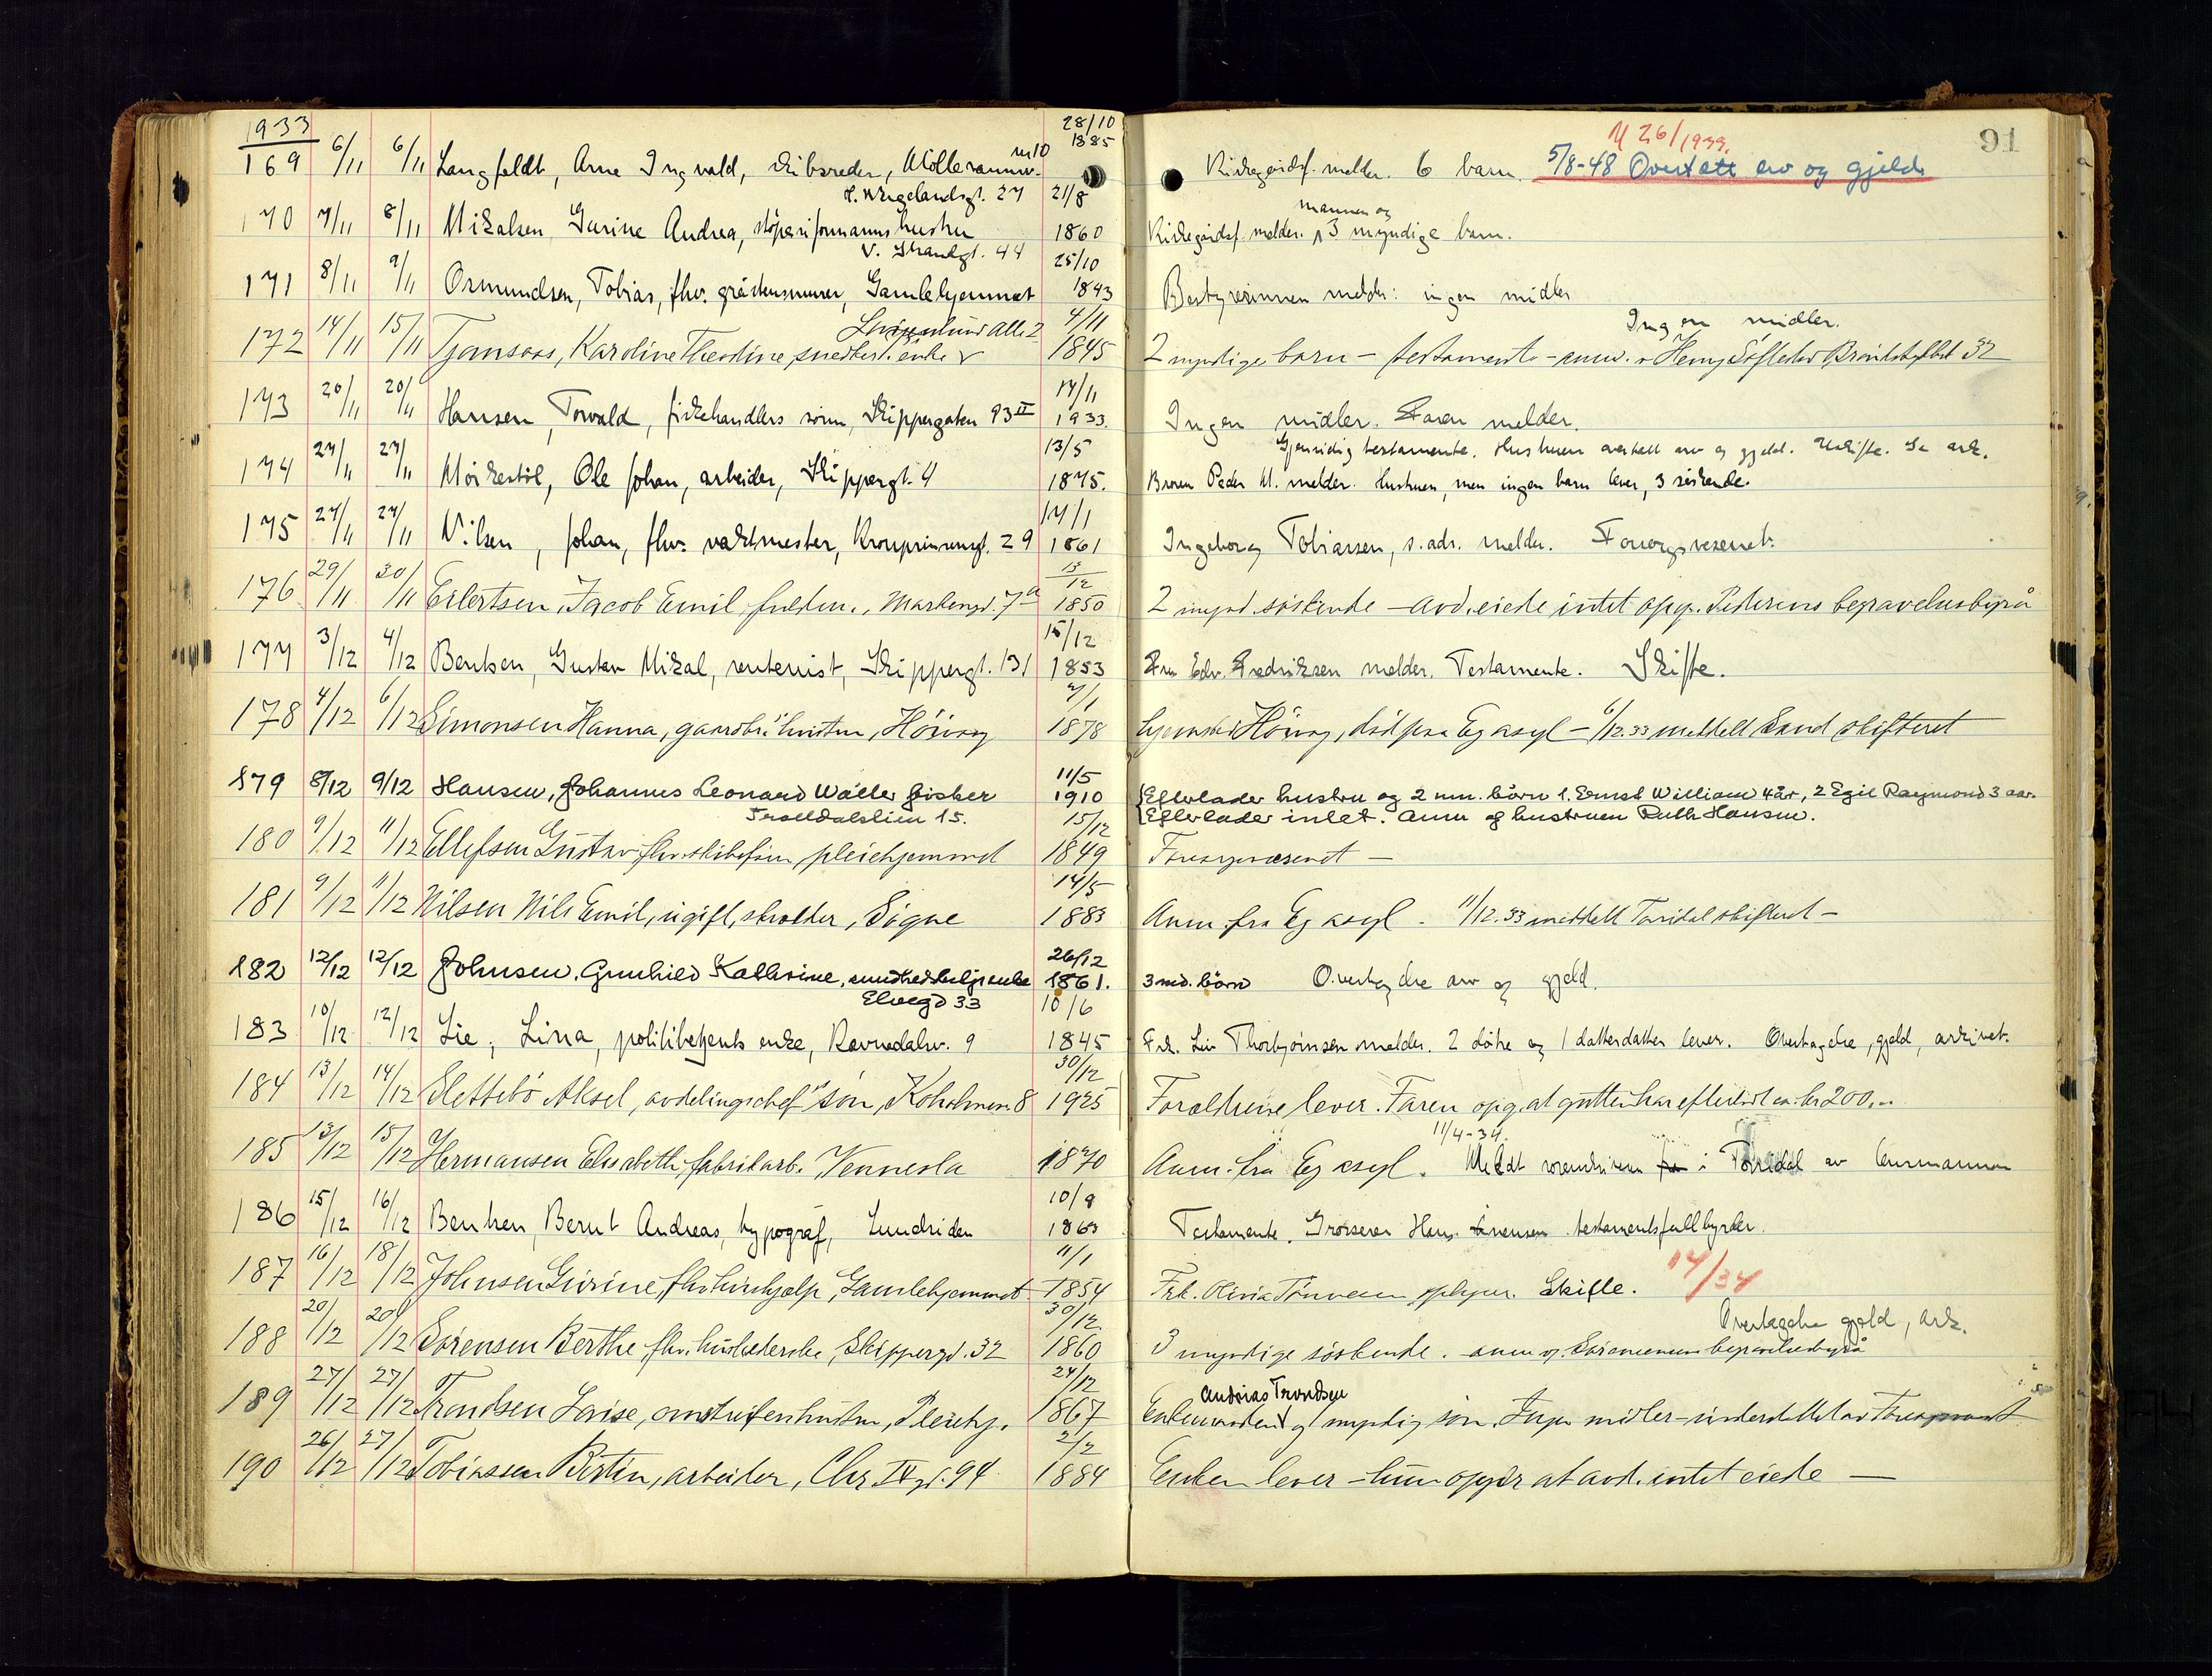 1933
28/10
169 6/11 6/11 Langfeldt, Arne Ingvald, skibsreder, Möllevannsv. nr 10 1885 Kirkegårdsf. melder. 6 barn. 5/8-48 Overtatt arv og gjeld
26/1933.
91
H. Wergelandsgt. 27 21/8
170 7/11 8/11 Mikalsen Gurine Andrea, støperiformanns hustru 1860 Kirkegårdsf. melder. mannen og 3 myndige barn.
V. Strandgt. 44 25/10
171 8/11 9/11 Osmundsen, Tobias, fhv. gråstensmurer, Gamlehjemmet 1843 Bestyrerinnen melder: ingen midler
Alle 2 4/11 Ingen midler.
172 14/11 15/11 Tjomsaas, Karoline Theodine, snedkers enke 1845 2 myndige barn - testamente - anm. v Henry 32
17/11
173 20/11 20/11 Hansen, Torvald, fiskehandlers sönn, Skippergaten 93 II 1933. Ingen midler. Faren melder.
13/5 Gjensidig testamente. Hustruen overtatt arv og gjeld. Uskifte. Se ark.
174 27/11 27/11 Möikestöl, Ole Johan, arbeider, Skippergt. 4 1875. Broren Peder M. melder. Hustruen, men ingen barn lever, 3 söskende.
17/1
175 27/11 27/11 Nilsen, Johan, fhv. vaktmester, Kronprinsensgt. 29 1861 Ingeborg Tobiassen, s. adr. melder. Forsorgsvesenet.
13/12
176 29/11 30/11 Eilertsen, Jacob Emil, fuldm., Markensgt. 7a 1850 2 mynd. söskende - avd. eiede intet opg. Pedersens begravelsesbyrå
15/12
177 3/12 4/12 Bentsen, Gustav Mikal, rentenist, Skippergt. 131 1853 Fru Edv. Fredriksen melder. Testamente. Skifte.
7/1
178 4/12 6/12 Simonsen Hanna, gaardbr. hustru, Hövåg 1878 hjemsted Hövåg, död fra Eg asyl - 6/12.33 meddelt Sand skifteret
11/5
179 8/12 9/12 Hansen, Johannes Leonard Walter fisker 1910 Efterlader hustru og 2 um. börn 1. Ernst William 4 år, 2 Egil Raymond 3 aar.
Trolldalslien 15. 15/12 Efterlader intet. Anm. af hustruen Ruth Hansen.
180 9/12 11/12 Ellefsen Gustav fhv. skibsförer, pleiehjemmet 1849 Forsorgsvæsenet -
14/5
181 9/12 11/12 Nilsen Nils Emil, ugift, Sögne 1883 Anm. fra Eg asyl. 11/12.33 meddelt Torridal skifteret -
26/12
182 12/12 12/12 Johnsen, Gunhild Kathrine, enke 1861. 3 md. börn Overtagelse arv og gjeld.
Elvegd 33 10/6
183 10/12 12/12 Lie, Lina, politibetjents enke, Ravnedalsv. 9 1845 Frk. Liv Thorbjörnsen melder. 2 dötre og 1 datterdatter lever. Overtagelse, gjeld, arkivet.
30/12
184 13/12 14/12 Slettebö Aksel, avdelingschefs sön, Koholmen 8 1925 Forældrene lever. Faren opg. at gutten har efterladt ca. kr 200,-
11/4-34.
185 13/12 15/12 Hermansen Elisabeth, fabrikarb. Vennesla 1870 Anm. fra Eg asyl. Meldt sorenskriveren i Torridal av lensmannen
10/9
186 15/12 16/12 Bentsen, Bernt Andreas, typograf, Lundsiden 1863 Testamente. Grosserer Hans Sörensen testamentsfullbyrder.
11/1
187 16/12 18/12 Johnsen Gurine, fhv. hushjelp, Gamlehjemmet 1854 Frk. Olivia Tönnesen oplyser. Skifte. 14/34
30/12. Overtagelse gjeld, ark.
188 20/12 20/12 Sörensen Berthe, fhv. husholderske, Skippergd. 32 1860 3 myndige söskende. anm. av Sörensens begravelsesbyrå
24/12 Andreas Trondsen
189 27/12 27/12 Trondsen Lovise, hustru, Pleiehj. 1867 Enkemanden og 1 myndig sön. Ingen midler - understöttet av Forsorgsvæsenet
2/2
190 26/12 27/12 Tobiassen Bertin, arbeider, Chr. IV gt. 94 1884 Enken lever - hun opgir at avd. intet eiede -